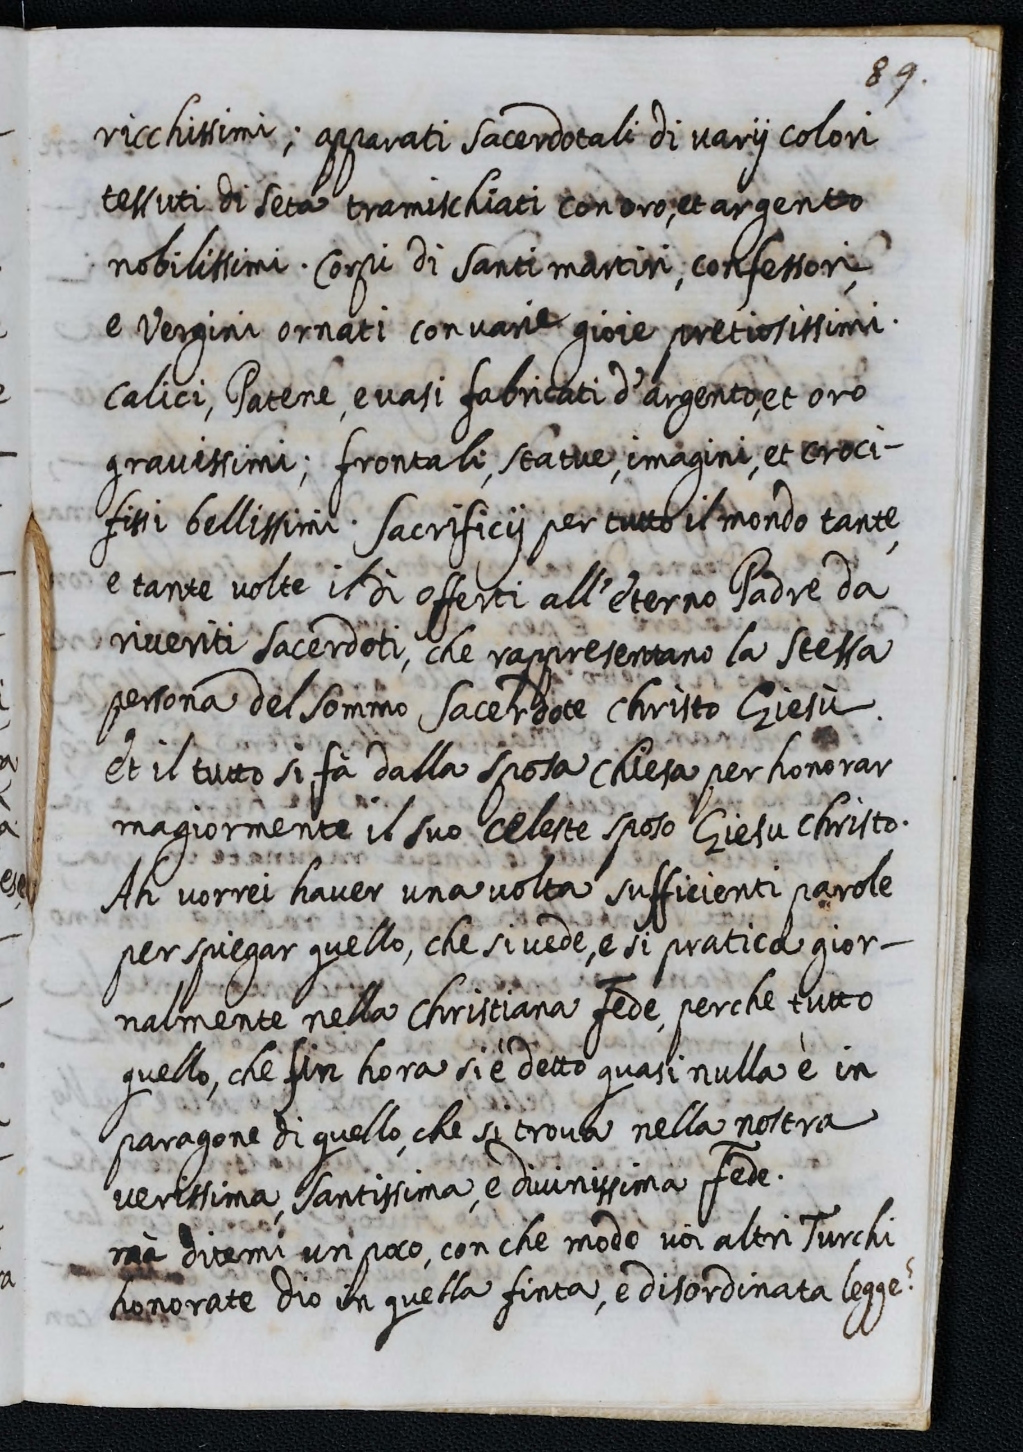 89.
ricchissimi; apparati sacerdotali di varij colori
tessuti di seta tramischiati con oro, et argento
nobilissimi. Corpi di santi martiri, confessori,
e Vergini ornati con varie gioie pretiosissimi.
Calici, Patene, e vasi fabricati d'argento, et oro
gravissimi; frontali, statue, imagini, et croci-
fissi bellissimi. Sacrificij per tutto il mondo tante,
e tante volte il dì offerti all'eterno Padre da
riveriti sacerdoti, che rappresentano la stessa
persona del sommo sacerdote Christo Giesù.
et il tutto si fà dalla sposa chiesa per honorar
magiormente il suo celeste sposo Giesu Christo.
Ah vorrei haver una volta sufficienti parole
per spiegar quello, che si vede, e si pratica gior-
nalmente nella Christiana Fede, perche tutto
quello, che fin hora si è detto quasi nulla è in
paragone di quello, che si trova nella nostra
verissima, santissima, e divinissima Fede.
mà ditemi un poco, con che modo voi altri Turchi
honorate dio in quella finta, e disordinata legge?